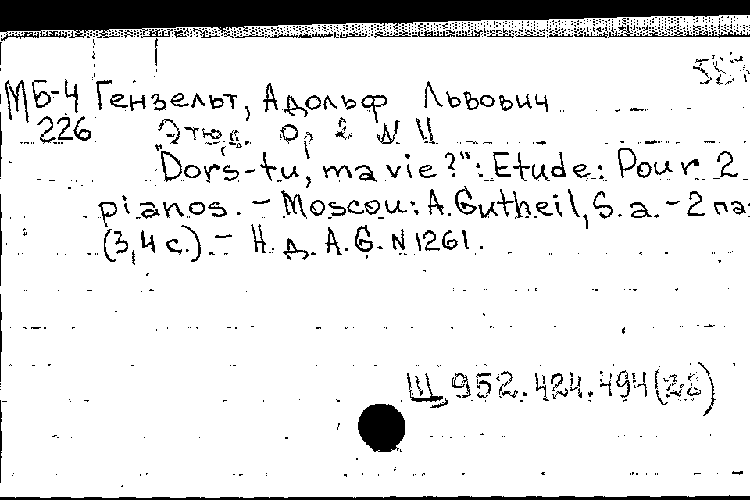 587
МБ-4 Гензельт, Адольф Львович
226 Этюд. Op 2 N 11
"Dors-tu, ma vie?": Etude: Pour 2
pianos. - Moscou: A. Gutheil, S. a. - 2 па
(3,4 с.) - Н. д. A. G. N 1261.
Щ 952.424.494(28)